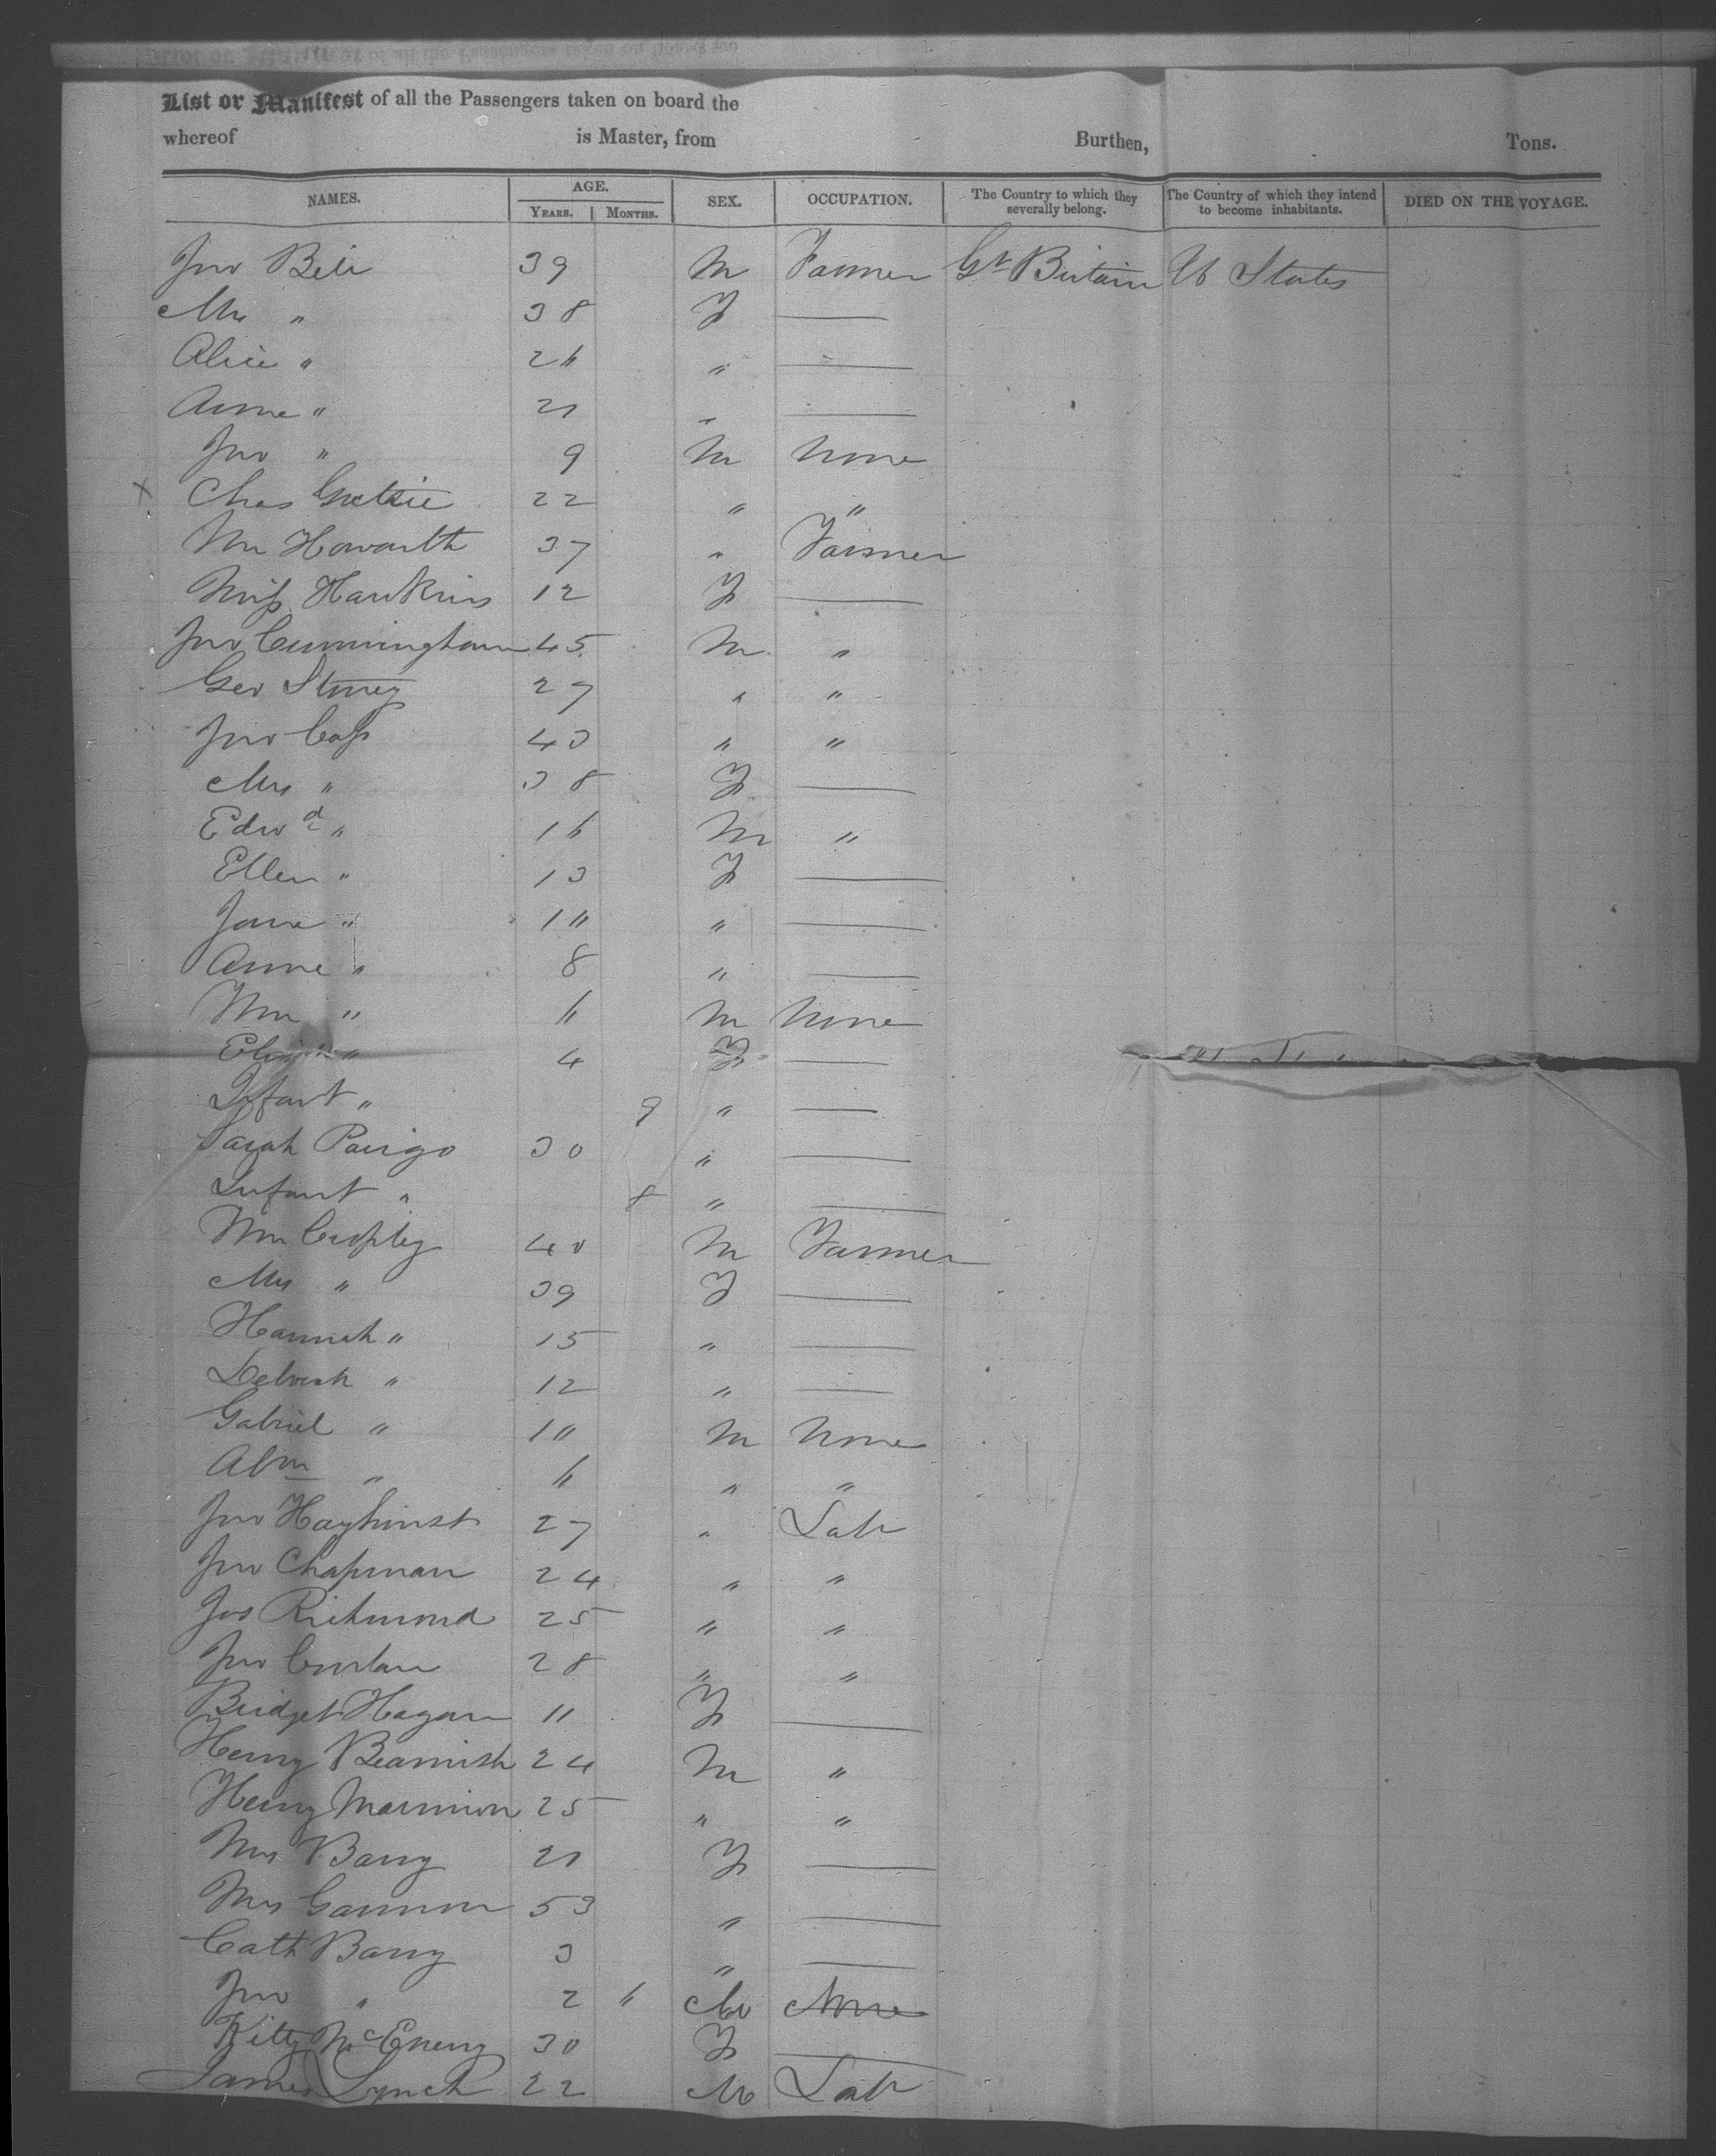 List or Manifest of all the Passengers taken on board the
whereof is Master, from Burthen, Tons.
NAMES. AGE. YEARS. MONTHS. SEX. OCCUPATION. The Country to which they severally belong. The Country of which they intend to become inhabitants. DIED ON THE VOYAGE.
Jno Bell 39 M Farmer Gt Britain U States
Mrs " 38 F —
Alice " 26 " —
Anne " 21 " —
Jno " 9 M None
x Chas 22 " "
Wm Howarth 37 " Farmer
Miss Hawkins 12 F —
Jno Cunningham 45 M "
Geo Storey 27 " "
Jno Cass 43 " "
Mrs " 38 F —
Edwd " 16 M "
Ellen " 13 F —
Jane " 10 " —
Anne " 8 " —
Wm " 6 M None
" 4 F —
Infant " 9 " —
Sarah Parigo 30 " —
Infant " 8 " —
Wm Cropley 40 M Farmer
Mrs " 39 F —
Hannah " 15 " —
Deborah " 12 " —
Gabriel " 10 M None
Abm " 6 " "
Jno Hayhurst 27 " Labr
Jno Chapman 24 " "
Jos Richmond 25 " "
Jno 28 " "
Bridget Hagan 11 F —
Henry Beamish 24 M "
Henry Marmion 25 " "
Mrs Barry 21 F —
Mrs Gannon 53 " —
Cath Barry 3 " —
Jno " 2 6 M None
Kitty McEnery 30 F —
James Lynch 22 M Labr